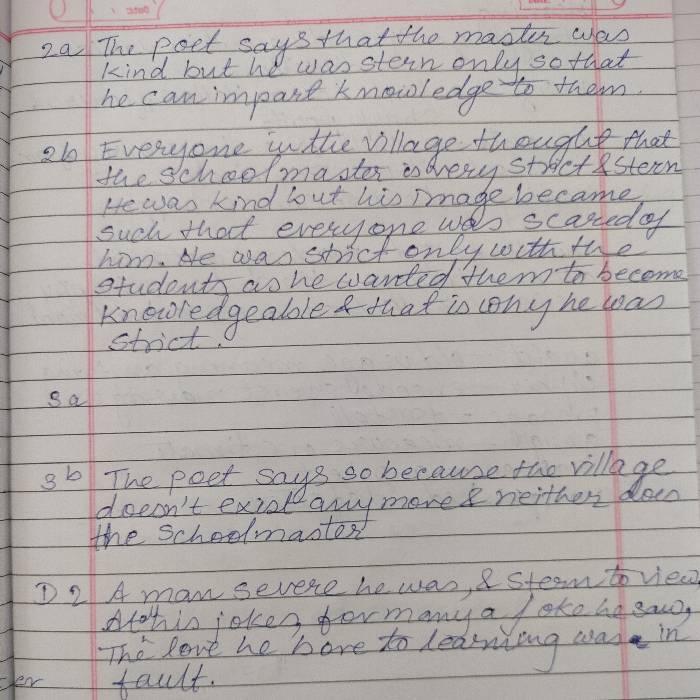 2a The poet says that the master was
kind but he was stern only so that
he can impart knowledge to them.
2b Everyone in the village thought that
the schoolmaster is very strict & stern
He was kind but his image became
such that everyone was scared of
him. He was strict only with the
students as he wanted them to become
knowledgeable & that is why he was
strict.
3a
3b The poet says so because the village
doesn't exist anymore & neither does
the schoolmaster
D 2 A man severe he was, & stern to view,
At his jokes, for many a joke he saw,
The love he bore to learning was in
fault.